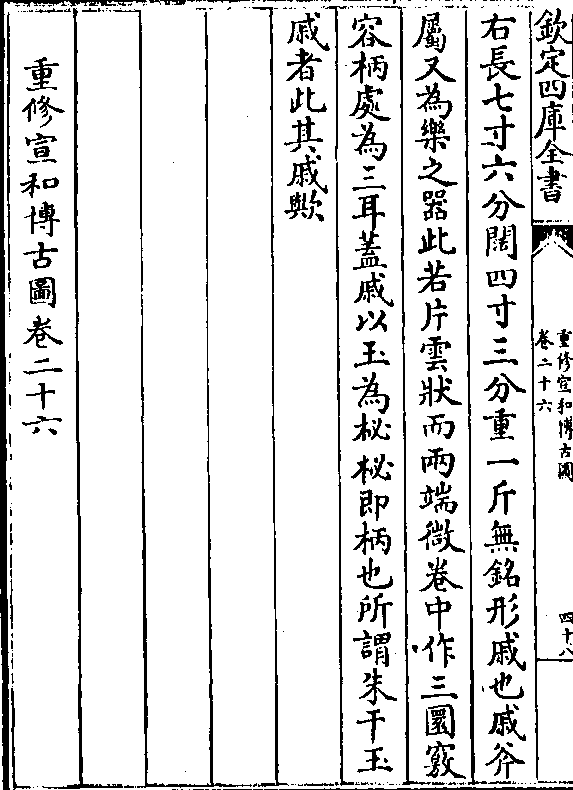 欽定四庫全書
重修宣和博古圖
卷二十六
四十八
右長七寸六分闊四寸三分重一斤無銘形戚也戚斧
屬又為樂之器此若片雲狀而兩端微卷中作三圜竅
容柄處為三耳蓋戚以玉為柲柲即柄也所謂朱干玉
戚者此其戚歟
重修宣和博古圖卷二十六